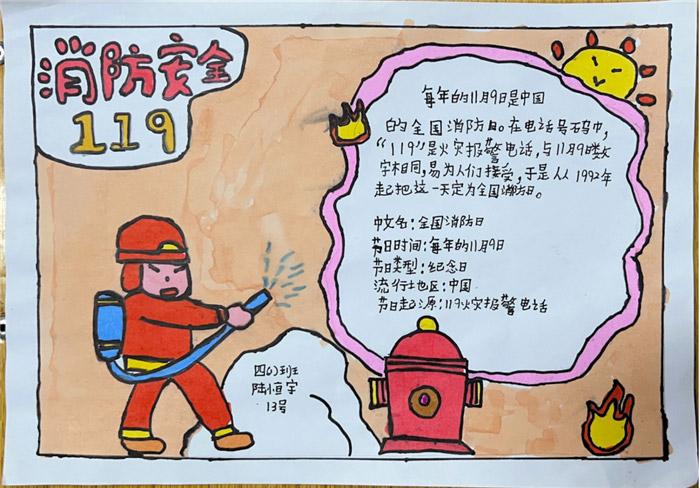 消防安全
119
每年的11月9日是中国
的全国消防日。在电话号码中，
“119”是火灾报警电话，与11月9日数
字相同，易为人们接受，于是从1992年
起把这一天定为全国消防日。
中文名：全国消防日
节日时间：每年的11月9日
节日类型：纪念日
流行地区：中国
节日起源：119火灾报警电话
四(1)班
陆恒宇
13号